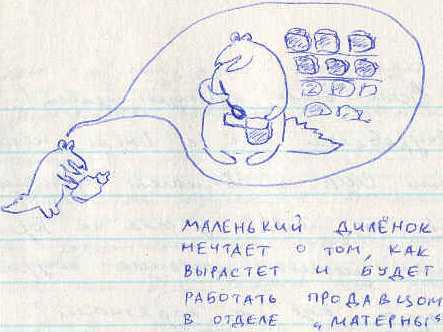 МАЛЕНЬКИЙ ДИЛЁНОК
МЕЧТАЕТ О ТОМ, КАК
ВЫРАСТЕТ И БУДЕТ
РАБОТАТЬ ПРОДАВЦОМ
В ОТДЕЛЕ „МАТЕРНЫЕ"